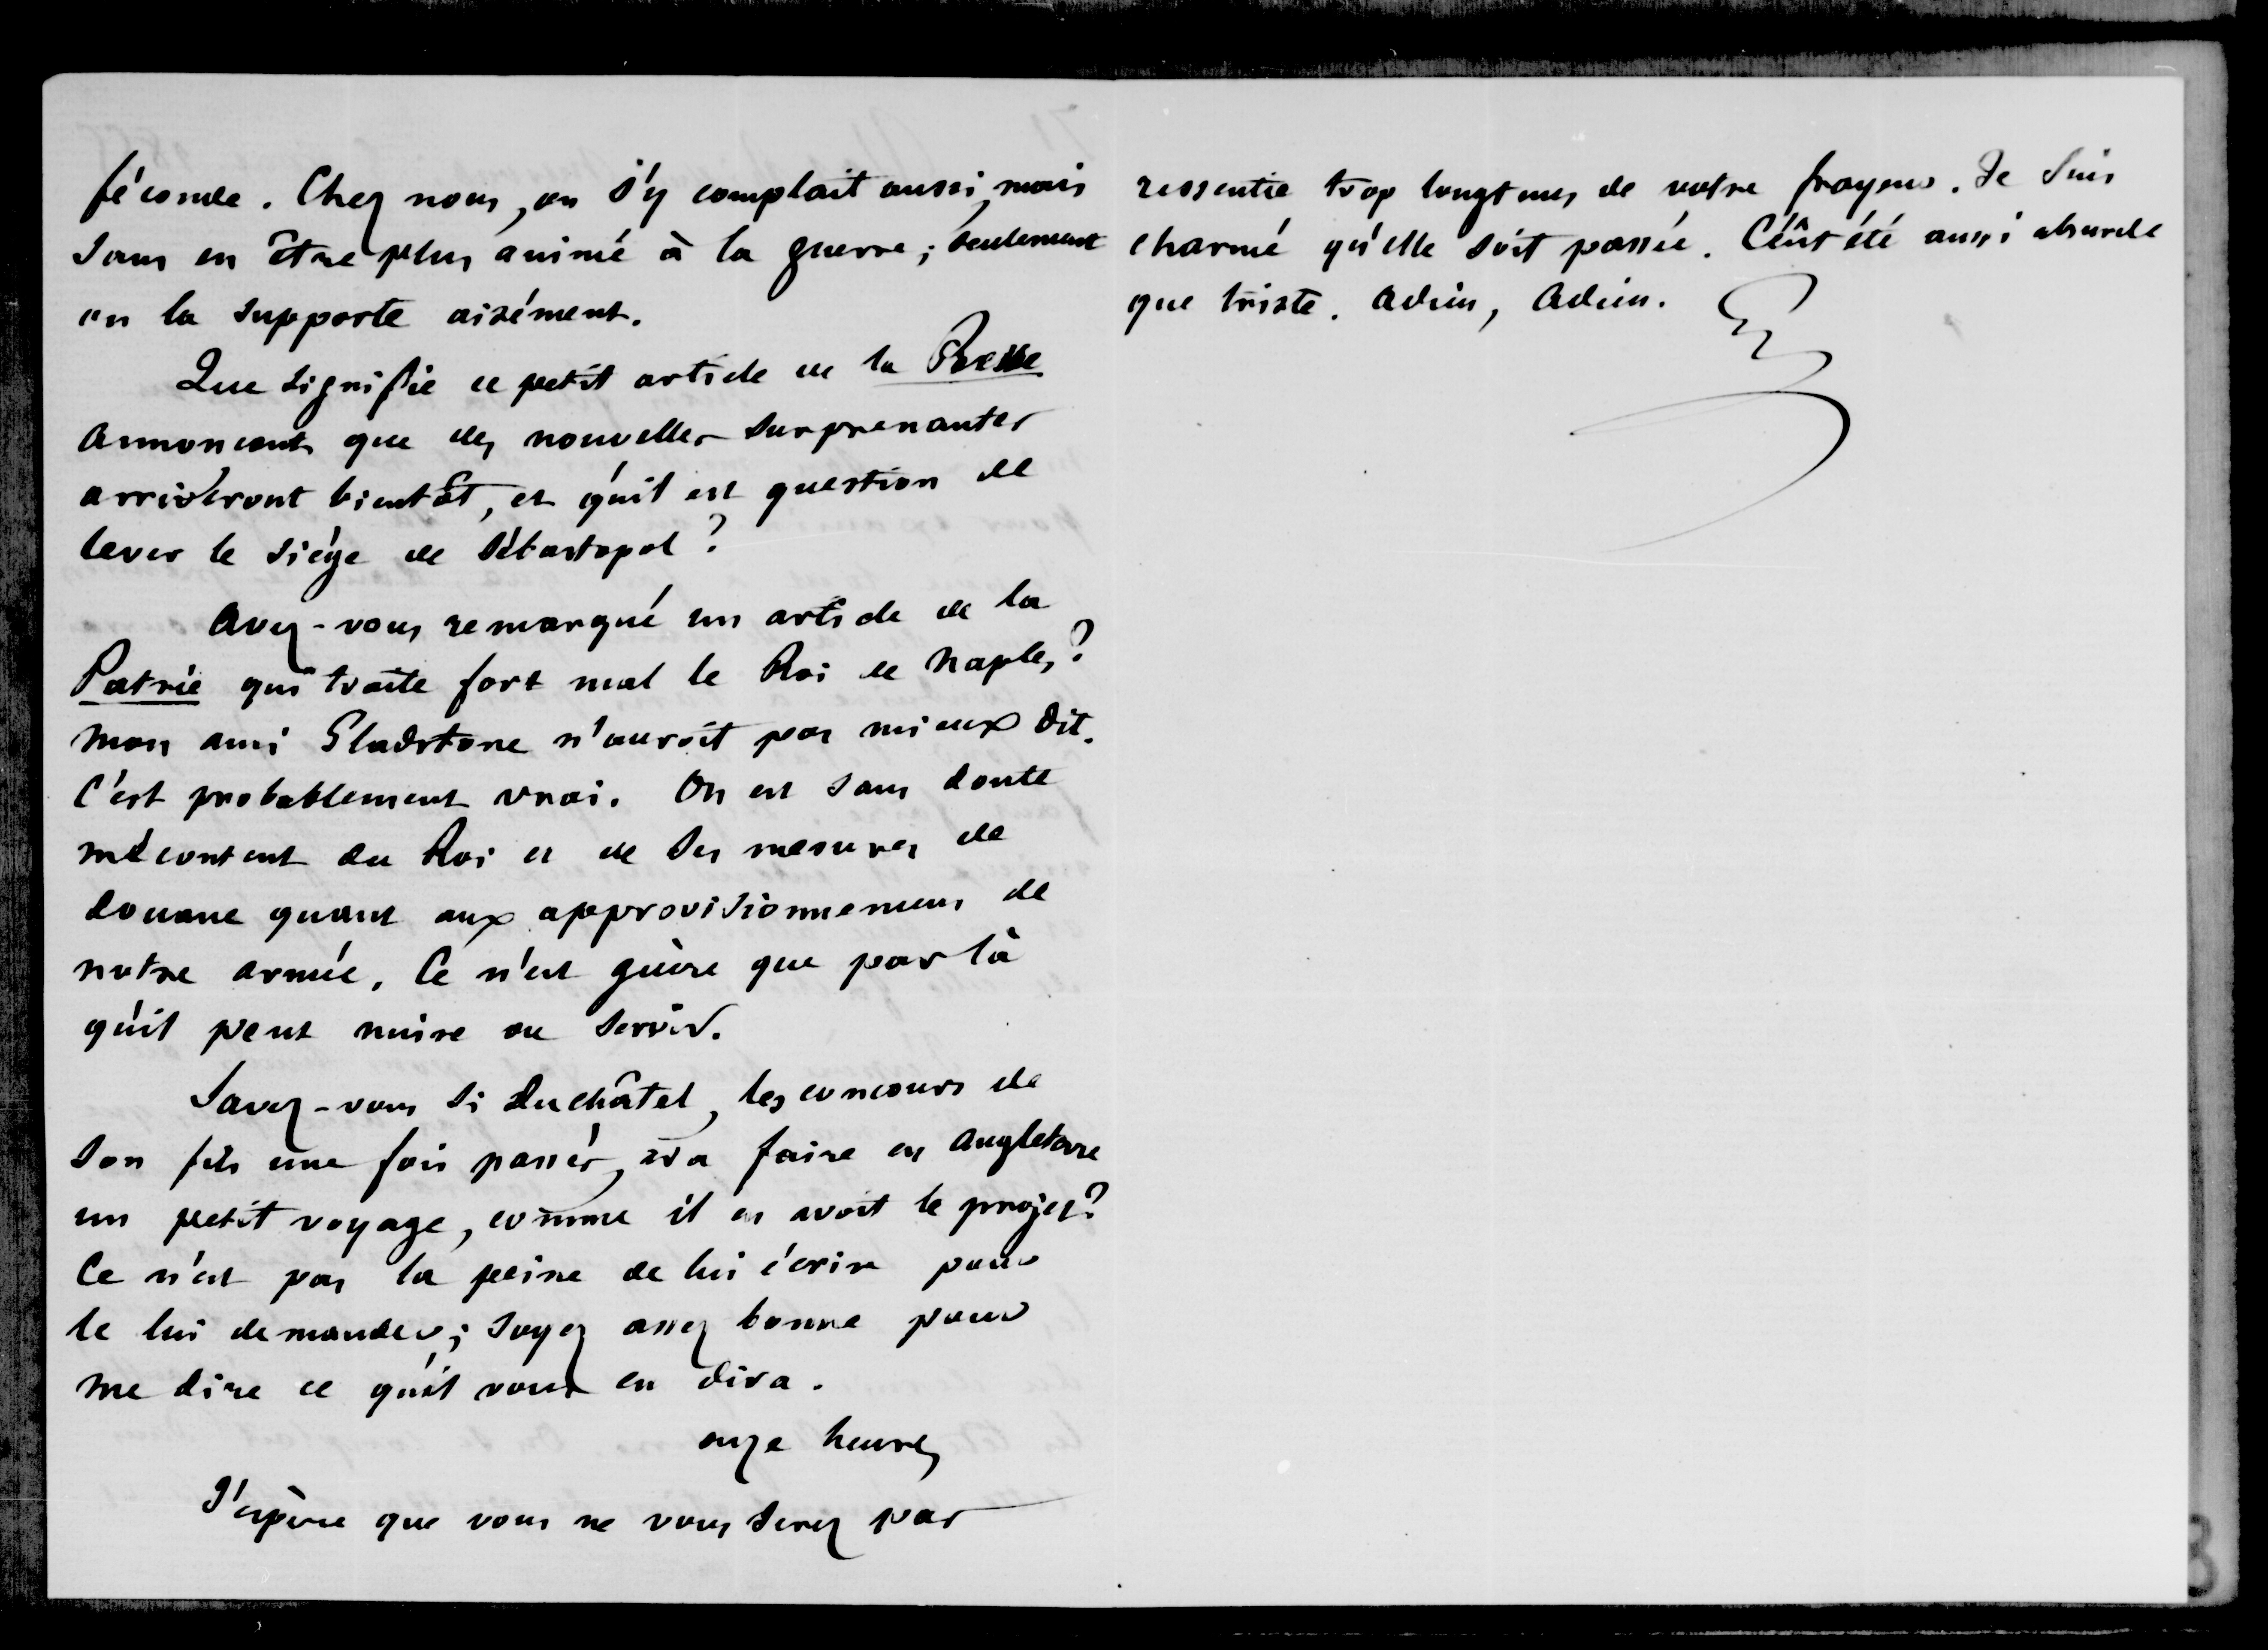 féconde. Chez nous, on s'y complait aussi, mais
sans en être plus animé à la guerre; seulement
on la supporte aisément.
Que signifie ce petit article de la Presse
annoncant que des nouvelles surprenantes
arriveront bientôt, et qu'il est question de
lever le siége de Sébastopol ?
Avez-vous remarqué un article de la
Patrie qui traite fort mal le Roi de Naples ?
Mon ami Gladstone n'auroit pas mieux dit.
C'est probablement vrai. On est sans doute
mécontent du Roi et de ses mesures de
douane quant aux approvisionnemens de
notre armée. Ce n'est guère que par là
qu'il peut nuire ou servir.
Savez-vous si Duchâtel, les concours de
son fils une fois passés, ira faire en Angleterre
un petit voyage, comme il en avoit le projet ?
Ce n'est pas la peine de lui écrire pour
le lui demander; soyez assez bonne pour
me dire ce qu'il vous en dira.
onze heures
J'espère que vous ne vous serez pas
ressentie trop longtems de votre frayeur. Je suis
charmé qu'elle soit passée. C'eût été aussi absurde
que triste. Adieu, Adieu.